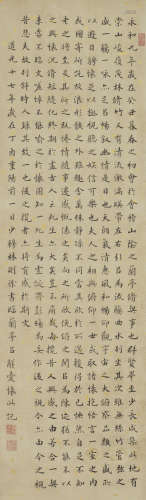 永和九年歲在癸丑暮春之初會于會稽山陰之蘭亭脩禊事也群賢畢至少長咸集此地有
崇山峻領茂林脩竹又有清流激湍映帶左右引以為流觴曲水列坐其次雖無絲竹管弦之
盛一觴一詠亦足以暢敘幽情是日也天朗氣清惠風和暢仰觀宇宙之大俯察品類之盛所
以遊目騁懷足以極視聽之娛信可樂也夫人之相與俯仰一世或取諸懷抱悟言一室之內
或因寄所託放浪形骸之外雖趣舍萬殊靜躁不同當其欣於所遇暫得於己快然自足不知
老之將至及其所之既惓情隨事遷感慨係之矣向之所欣俛仰之間以為陳迹猶不能不以
之興懷況脩短隨化終期於盡古人云死生亦大矣豈不痛哉每攬昔人興感之由若合一契
未嘗不臨文嗟悼不能喻之於懷固知一死生為虛誕齊彭殤為妄作後之視今亦由今之視昔
悲夫故列敘時人錄其所述雖世殊事異所以興懷其致一也後之攬者亦將有感於斯文
道光十七年歲丁酉重陽前一日少穆林則徐書臨蘭亭